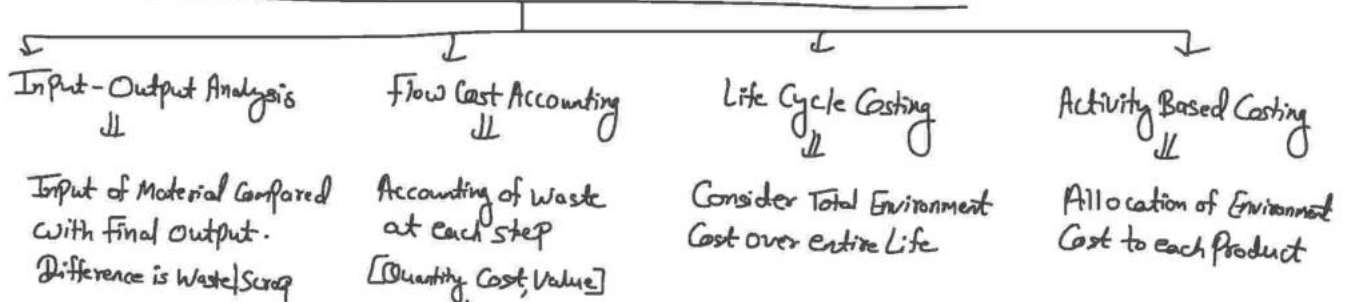 Input-Output Analysis
Input of Material Compared
with Final Output.
Difference is Waste/Scrap
Flow Cost Accounting
Accounting of Waste
at each step
[Quantity, Cost, Value]
Life Cycle Costing
Consider Total Environment
Cost over entire Life
Activity Based Costing
Allocation of Environment
Cost to each Product